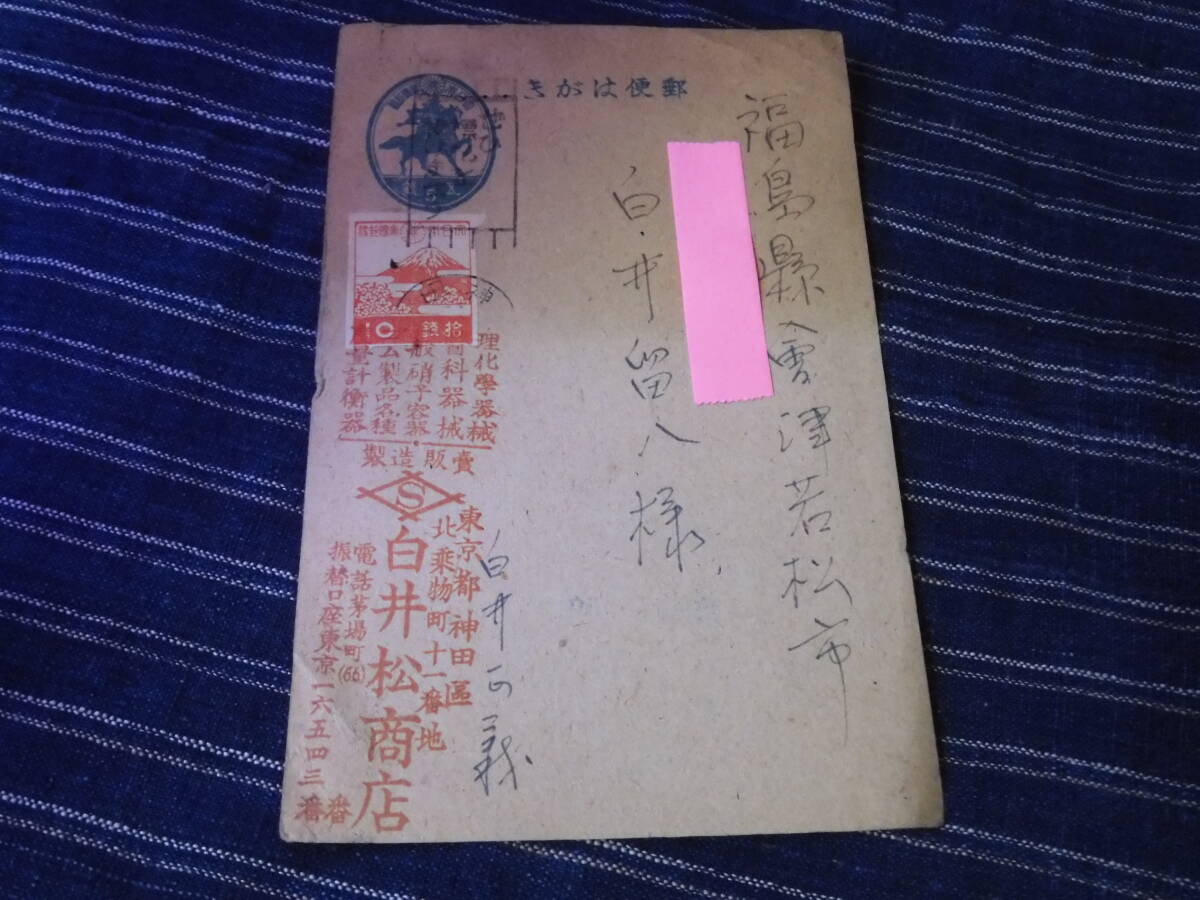 郵便はがき
福島縣會津若松市
白井留八様
拾銭
10
理化學器械
醫科器械
硝子容器
製品各種
計衡器
製造販賣
S
東京都神田區
北乗物町十一番地
白井松商店
電話茅場町(66)
番
振替口座東京一六五四三番
白井正義